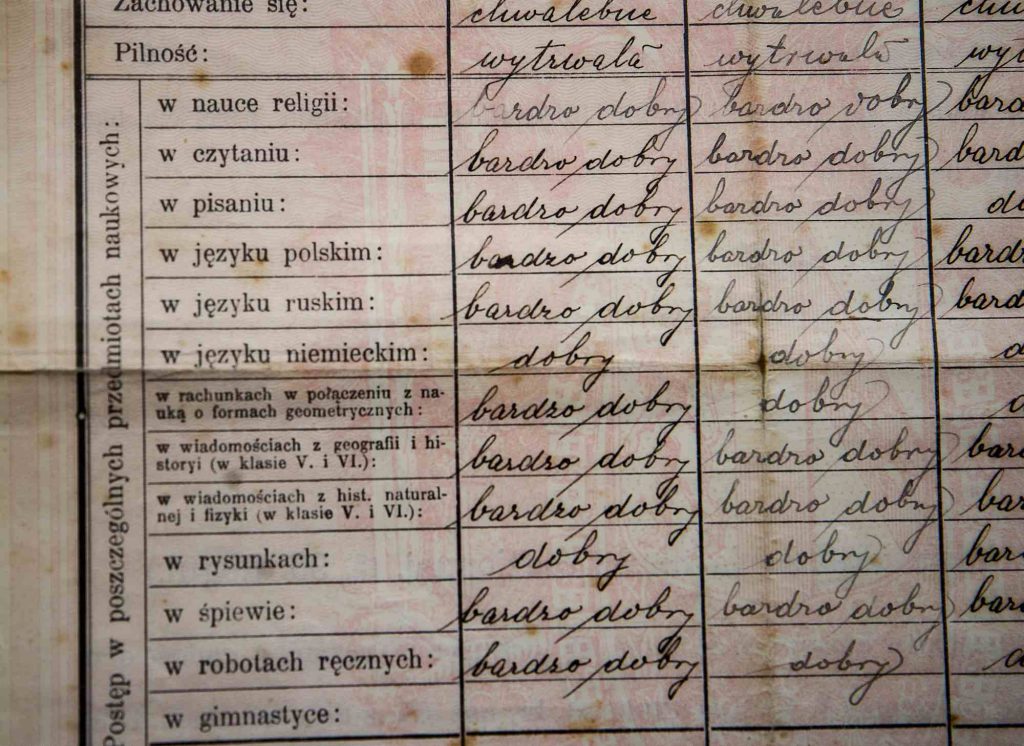 Zachowanie się: chwalebne chwalebne
Pilność: wytrwała wytrwała
Postęp w poszczególnych przedmiotach naukowych:
w nauce religii: bardzo dobry bardzo dobry
w czytaniu: bardzo dobry bardzo dobry
w pisaniu: bardzo dobry bardzo dobry
w języku polskim: bardzo dobry bardzo dobry
w języku ruskim: bardzo dobry bardzo dobry
w języku niemieckim: dobry dobry
w rachunkach w połączeniu z na-
uką o formach geometrycznych: bardzo dobry dobry
w wiadomościach z geografii i hi-
storyi (w klasie V. i VI.): bardzo dobry bardzo dobry
w wiadomościach z hist. natural-
nej i fizyki (w klasie V. i VI.): bardzo dobry bardzo dobry
w rysunkach: dobry dobry
w śpiewie: bardzo dobry bardzo dobry
w robotach ręcznych: bardzo dobry dobry
w gimnastyce: